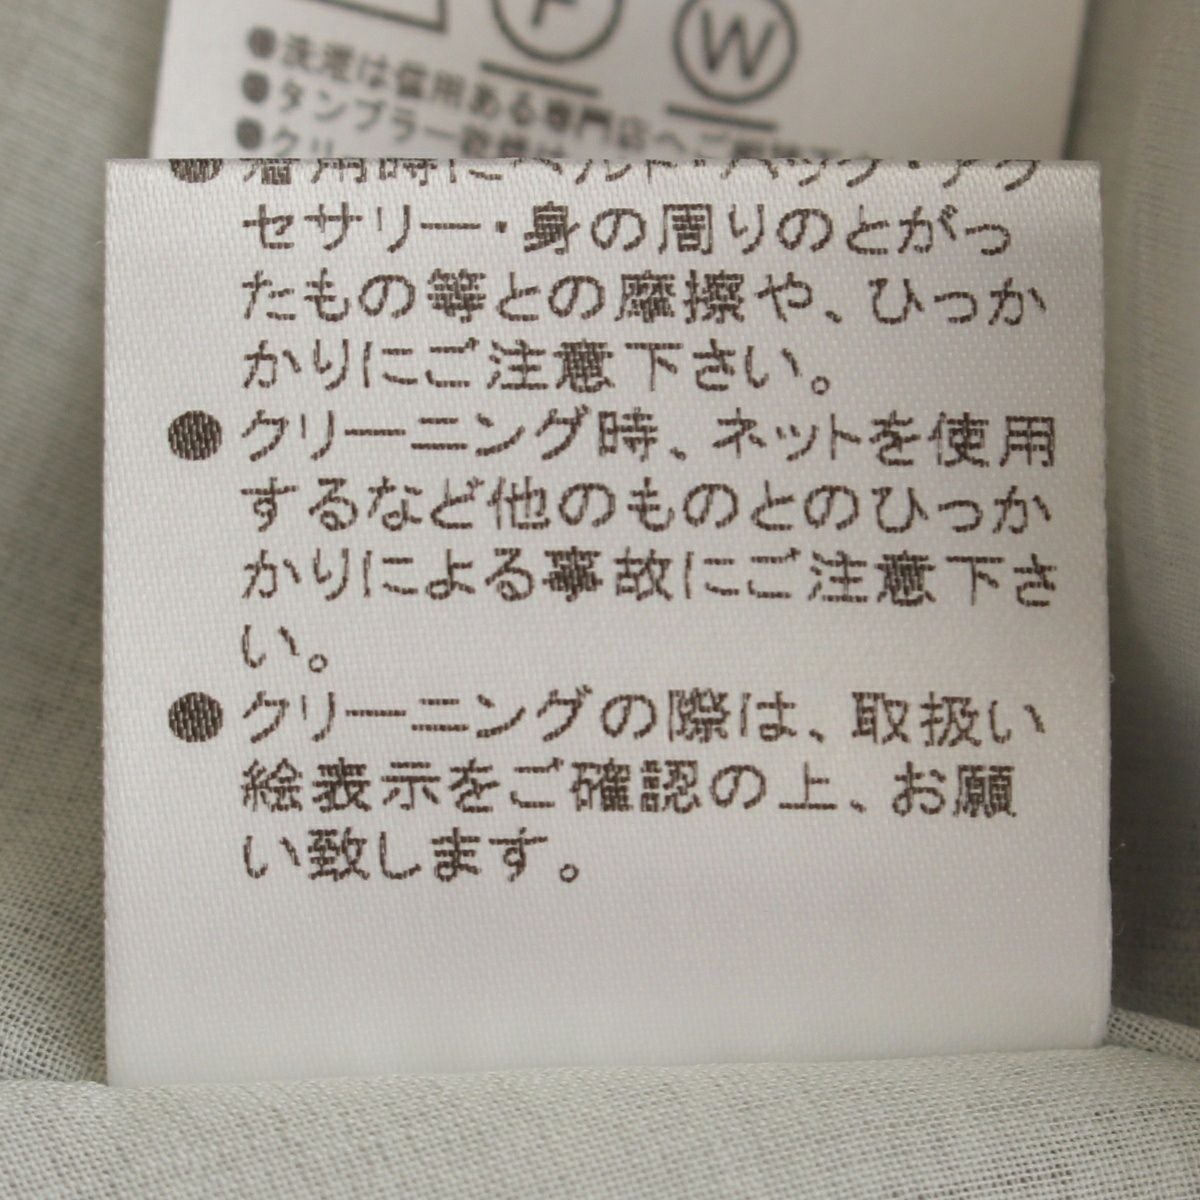 F
W
●洗濯は信用ある専門店へご
●タンブラー乾燥は
●クリ
●着用時にベルト・バッグ・アク
セサリー・身の周りのとがっ
たもの等との摩擦や、ひっか
かりにご注意下さい。
●クリーニング時、ネットを使用
するなど他のものとのひっか
かりによる事故にご注意下さ
い。
●クリーニングの際は、取扱い
絵表示をご確認の上、お願
い致します。